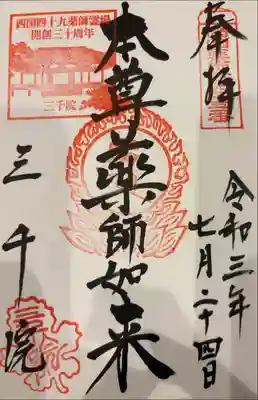 奉拝
令和三年
七月二十四日
本尊薬師如来
四国四十九薬師霊場
開創三十周年
三千院
三千院